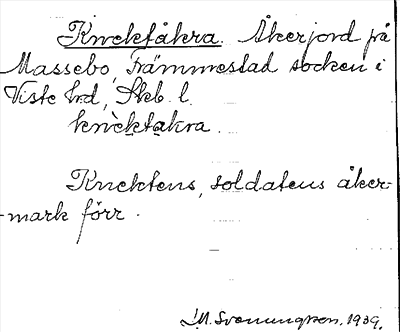 Knektåkra. Åkerjord på
Massebo, Främmestad socken i
Viste hrd, Skb. l.
knèktakra.
Knektens, soldatens åker-
mark förr.
M. Svenungsson. 1939.